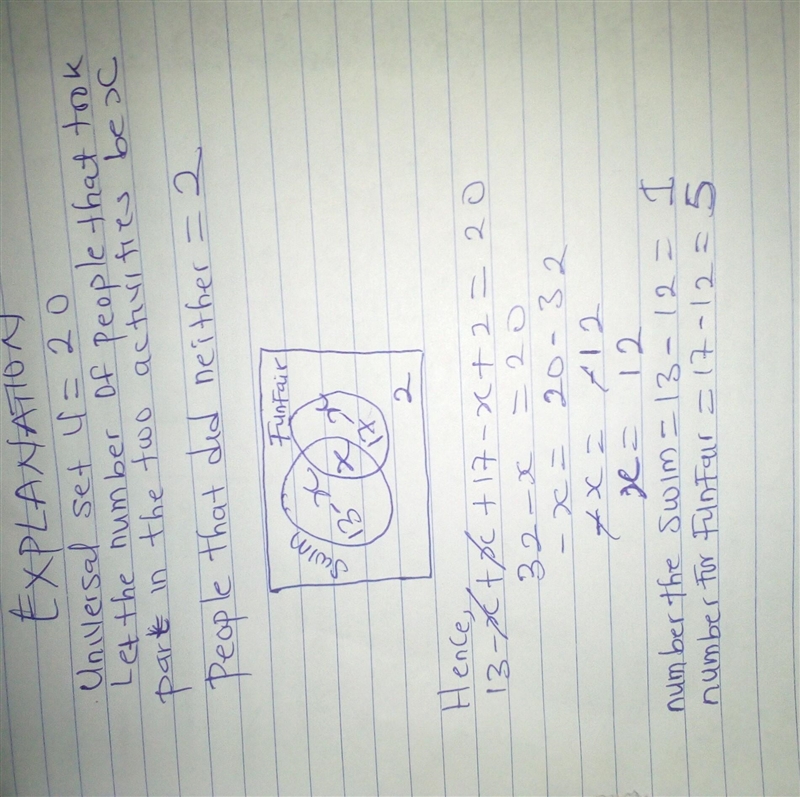 EXPLANATION
Universal set U = 20
Let the number of people that took
part in the two activities be x
people that did neither = 2
Swim
FunFair
13-x
x
17-x
2
Hence,
13-x+x+17-x+2=20
32-x=20
-x=20-32
-x=-12
x=12
number the swim=13-12=1
number for FunFair=17-12=5